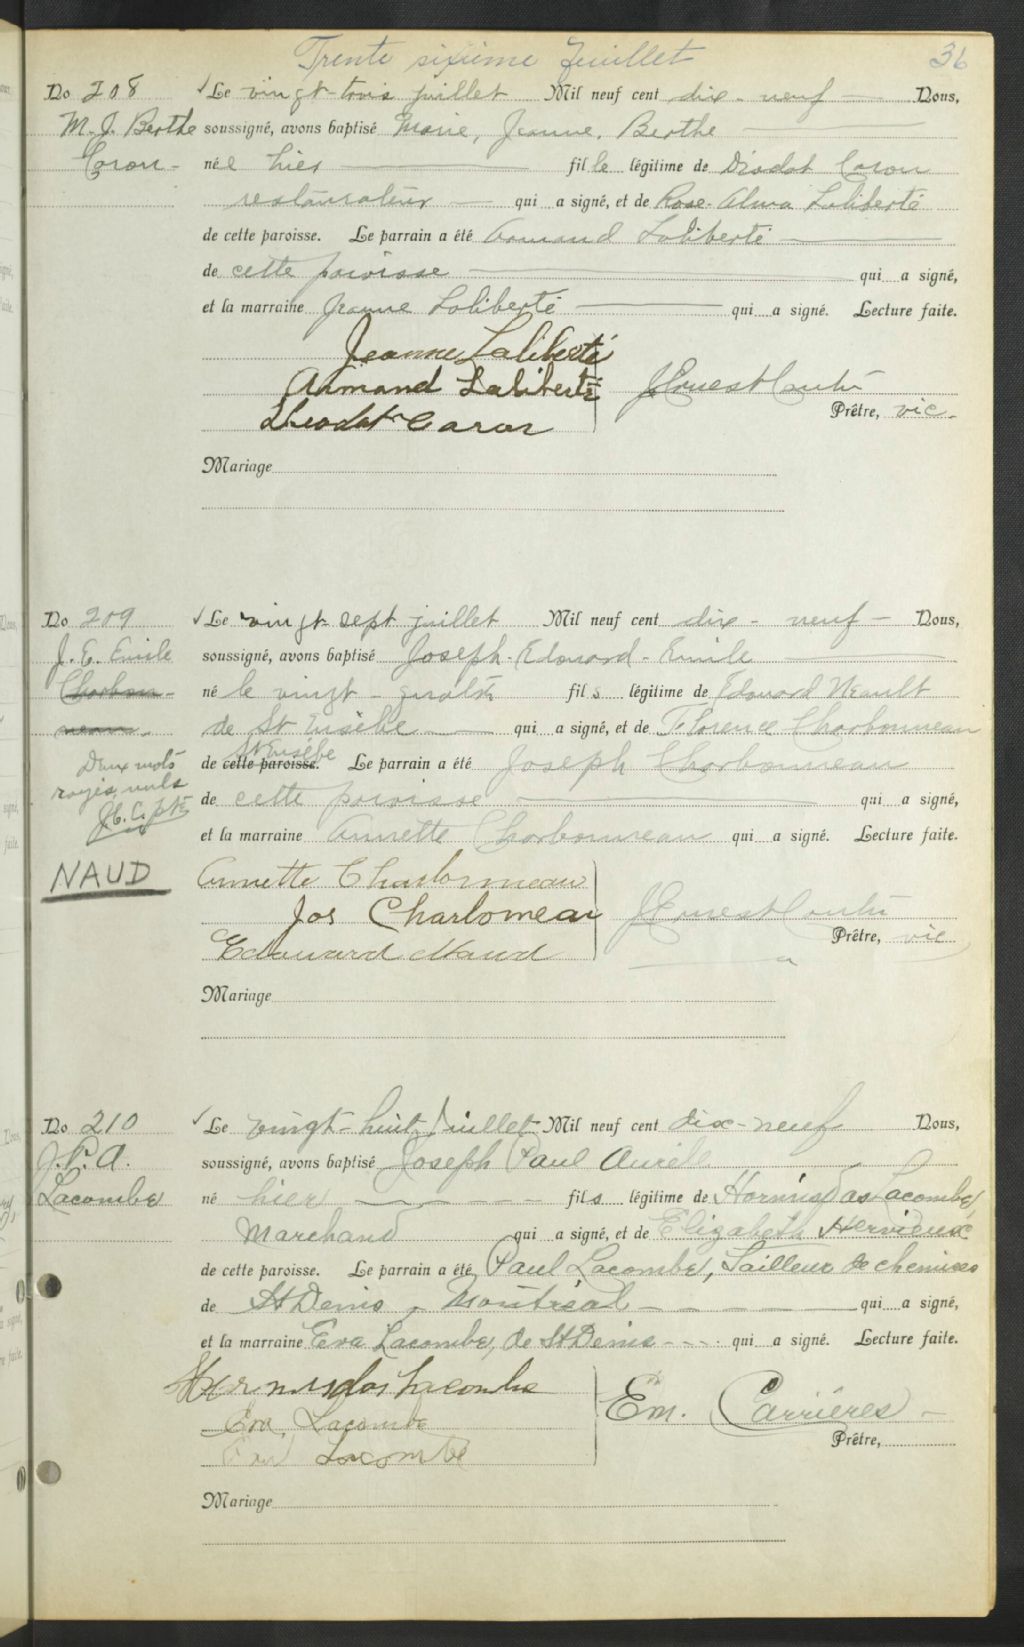 Trente sixième feuillet 36
No 208 Le vingt-trois juillet Mil neuf cent dix-neuf Nous,
M. J. Berthe soussigné, avons baptisé Marie, Jeanne, Berthe
Caron née hier fille légitime de Diodat Caron
restaurateur qui a signé, et de Rose-Alma Laliberté
de cette paroisse. Le parrain a été Armand Laliberté
de cette paroisse qui a signé,
et la marraine Jeanne Laliberté qui a signé. Lecture faite.
Jeanne Laliberté
Armand Laliberté J Ernest Coutu
Déodat Caron Prêtre, vic.
Mariage
No 209 Le vingt-sept juillet Mil neuf cent dix-neuf Nous,
J. E. Emile soussigné, avons baptisé Joseph-Edouard-Emile
Charbon- né le vingt-quatre fils légitime de Edouard Neault
neau. de St Eusèbe qui a signé, et de Florence Charbonneau
St Eusèbe
Deux mots de cette paroisse. Le parrain a été Joseph Charbonneau
rayés nuls de cette paroisse qui a signé,
J.E.C. ptre et la marraine Annette Charbonneau qui a signé. Lecture faite.
NAUD Annette Charbonneau
Jos Charboneau J Ernest Coutu
Edouard Naud Prêtre, vic
Mariage
No 210 Le vingt-huit Juillet Mil neuf cent dix-neuf Nous,
J. P. A. soussigné, avons baptisé Joseph Paul Aurèle
Lacombe né hier fils légitime de Hormisdas Lacombe,
Marchand qui a signé, et de Elizabeth Hervieux
de cette paroisse. Le parrain a été Paul Lacombe, Tailleur de chemises
de St Denis, Montréal qui a signé,
et la marraine Eva Lacombe, de St Denis qui a signé. Lecture faite.
Hormisdas Lacombe
Eva Lacombe Em. Carrières
Lacombe Prêtre,
Mariage